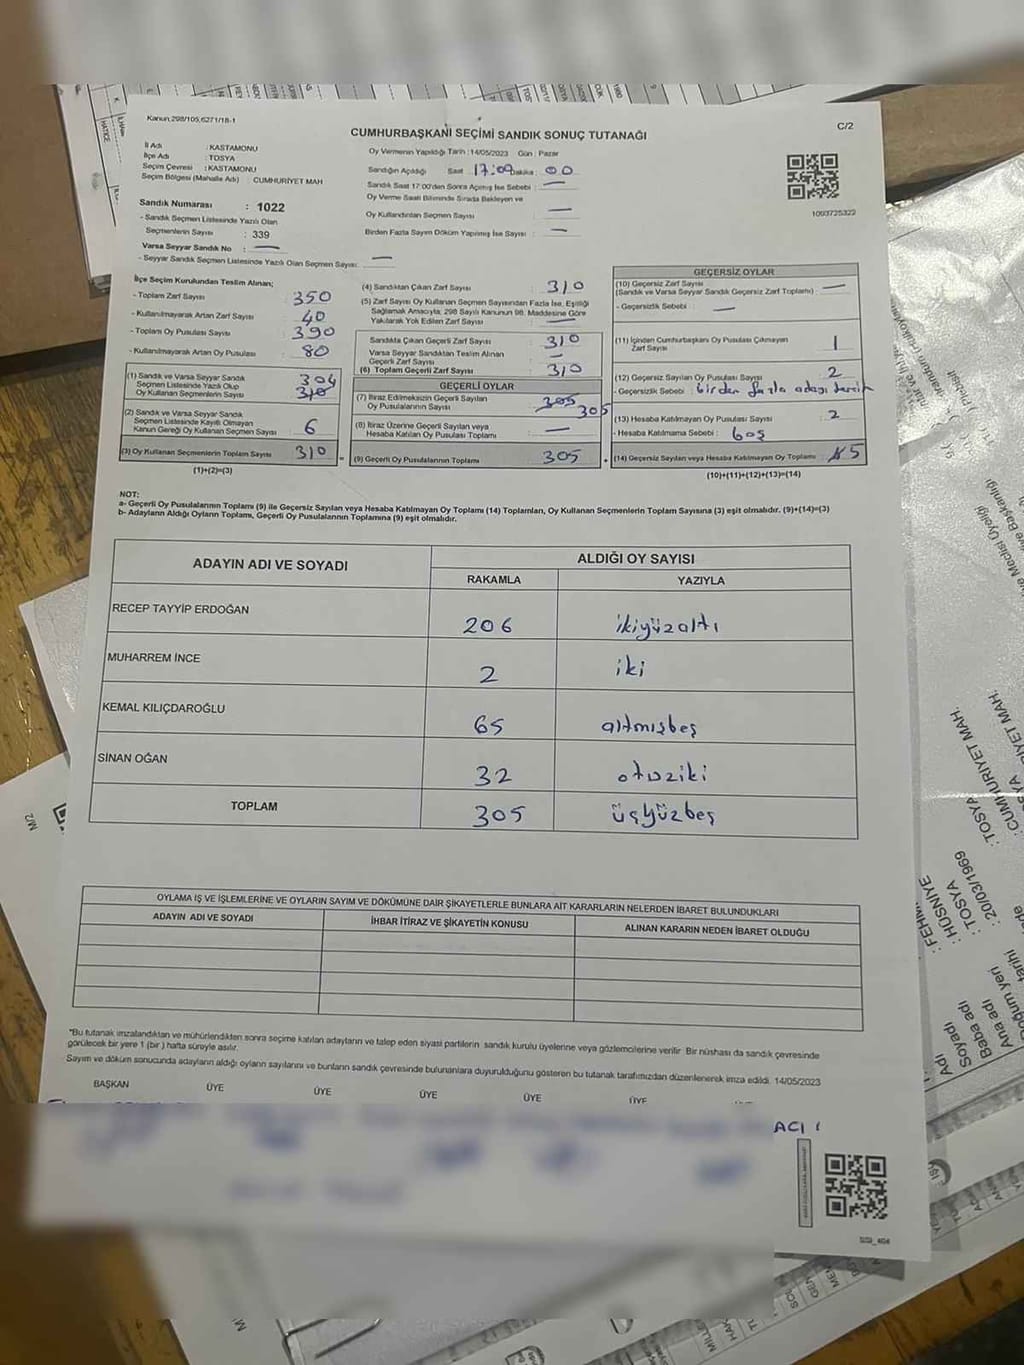 Kanun;298/105,6271/18-1
CUMHURBAŞKANI SEÇİMİ SANDIK SONUÇ TUTANAĞI
C/2
İl Adı : KASTAMONU
İlçe Adı : TOSYA
Seçim Çevresi : KASTAMONU
Seçim Bölgesi (Mahalle Adı) : CUMHURİYET MAH
Sandık Numarası : 1022
- Sandık Seçmen Listesinde Yazılı Olan
Seçmenlerin Sayısı : 339
Varsa Seyyar Sandık No : —
- Seyyar Sandık Seçmen Listesinde Yazılı Olan Seçmen Sayısı: —
Oy Vermenin Yapıldığı Tarih :14/05/2023 Gün : Pazar
Sandığın Açıldığı Saat : 17:00 Dakika : 00
Sandık Saat 17:00'den Sonra Açılmış İse Sebebi : —
Oy Verme Saati Bitiminde Sırada Bekleyen ve
Oy Kullandırılan Seçmen Sayısı : —
Birden Fazla Sayım Döküm Yapılmış İse Sayısı : —
1093725322
İlçe Seçim Kurulundan Teslim Alınan;
- Toplam Zarf Sayısı : 350
- Kullanılmayarak Artan Zarf Sayısı : 40
- Toplam Oy Pusulası Sayısı : 390
- Kullanılmayarak Artan Oy Pusulası : 80
(1) Sandık ve Varsa Seyyar Sandık
Seçmen Listesinde Yazılı Olup
Oy Kullanan Seçmenlerin Sayısı : 304 310
(2) Sandık ve Varsa Seyyar Sandık
Seçmen Listesinde Kayıtlı Olmayan
Kanun Gereği Oy Kullanan Seçmen Sayısı : 6
(3) Oy Kullanan Seçmenlerin Toplam Sayısı : 310
(1)+(2)=(3)
(4) Sandıktan Çıkan Zarf Sayısı : 310
(5) Zarf Sayısı Oy Kullanan Seçmen Sayısından Fazla İse, Eşitliği
Sağlamak Amacıyla; 298 Sayılı Kanunun 98. Maddesine Göre
Yakılarak Yok Edilen Zarf Sayısı : —
Sandıkta Çıkan Geçerli Zarf Sayısı : 310
Varsa Seyyar Sandıktan Teslim Alınan
Geçerli Zarf Sayısı : —
(6) Toplam Geçerli Zarf Sayısı : 310
GEÇERLİ OYLAR
(7) İtiraz Edilmeksizin Geçerli Sayılan
Oy Pusulalarının Sayısı : 305 305
(8) İtiraz Üzerine Geçerli Sayılan veya
Hesaba Katılan Oy Pusulası Toplamı : —
(9) Geçerli Oy Pusulalarının Toplamı : 305
GEÇERSİZ OYLAR
(10) Geçersiz Zarf Sayısı
(Sandık ve Varsa Seyyar Sandık Geçersiz Zarf Toplamı) : —
- Geçersizlik Sebebi : —
(11) İçinden Cumhurbaşkanı Oy Pusulası Çıkmayan
Zarf Sayısı : 1
(12) Geçersiz Sayılan Oy Pusulası Sayısı : 2
- Geçersizlik Sebebi : birden fazla adayı tercih
(13) Hesaba Katılmayan Oy Pusulası Sayısı : 2
- Hesaba Katılmama Sebebi : boş
(14) Geçersiz Sayılan veya Hesaba Katılmayan Oy Toplamı : 5
(10)+(11)+(12)+(13)=(14)
NOT:
a- Geçerli Oy Pusulalarının Toplamı (9) ile Geçersiz Sayılan veya Hesaba Katılmayan Oy Toplamı (14) Toplamları, Oy Kullanan Seçmenlerin Toplam Sayısına (3) eşit olmalıdır. (9)+(14)=(3)
b- Adayların Aldığı Oyların Toplamı, Geçerli Oy Pusulalarının Toplamına (9) eşit olmalıdır.
ADAYIN ADI VE SOYADI
ALDIĞI OY SAYISI
RAKAMLA YAZIYLA
RECEP TAYYİP ERDOĞAN 206 ikiyüzaltı
MUHARREM İNCE 2 iki
KEMAL KILIÇDAROĞLU 65 altmışbeş
SİNAN OĞAN 32 otuziki
TOPLAM 305 üçyüzbeş
OYLAMA İŞ VE İŞLEMLERİNE VE OYLARIN SAYIM VE DÖKÜMÜNE DAİR ŞİKAYETLERLE BUNLARA AİT KARARLARIN NELERDEN İBARET BULUNDUKLARI
ADAYIN ADI VE SOYADI İHBAR İTİRAZ VE ŞİKAYETİN KONUSU ALINAN KARARIN NEDEN İBARET OLDUĞU
*Bu tutanak imzalandıktan ve mühürlendikten sonra seçime katılan adayların ve talep eden siyasi partilerin sandık kurulu üyelerine veya gözlemcilerine verilir. Bir nüshası da sandık çevresinde
görülecek bir yere 1 (bir) hafta süreyle asılır.
Sayım ve döküm sonucunda adayların aldığı oyların sayılarını ve bunların sandık çevresinde bulunanlara duyurulduğunu gösteren bu tutanak tarafımızdan düzenlenerek imza edildi. 14/05/2023
BAŞKAN ÜYE ÜYE ÜYE ÜYE ÜYE
ACI
M/2
HATİCE
: TOSYA
: CUMHURİYET MAH.
: HÜSNİYE
: TOSYA
: 20/03/1969
Adı
Soyadı
Baba adı
Ana adı